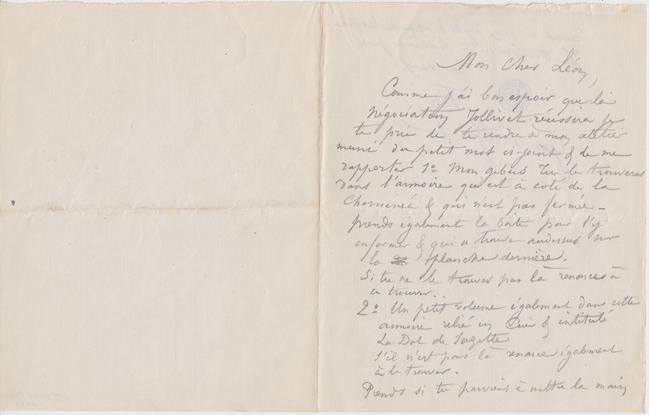 Mon cher Léon,
Comme j'ai bon espoir que la
négociation Jollivet réussira je
te prie de te rendre à mon atelier
muni du petit mot ci-joint & de me
rapporter 1º Mon gibus tu le trouveras
dans l'armoire qui est à coté de la
cheminée & qui n'est pas fermée_
prends également la boite pour l'y
enfermer & qui se trouve audessus sur
la planche dernière.
Si tu ne le trouves pas là renonces à
le trouver..
2º Un petit volume également dans cette
armoire relié en cuir & intitulé
La Dot de Suzette
s'il n'est pas là renonce également
à le trouver.
Prends si tu parviens à mettre la main